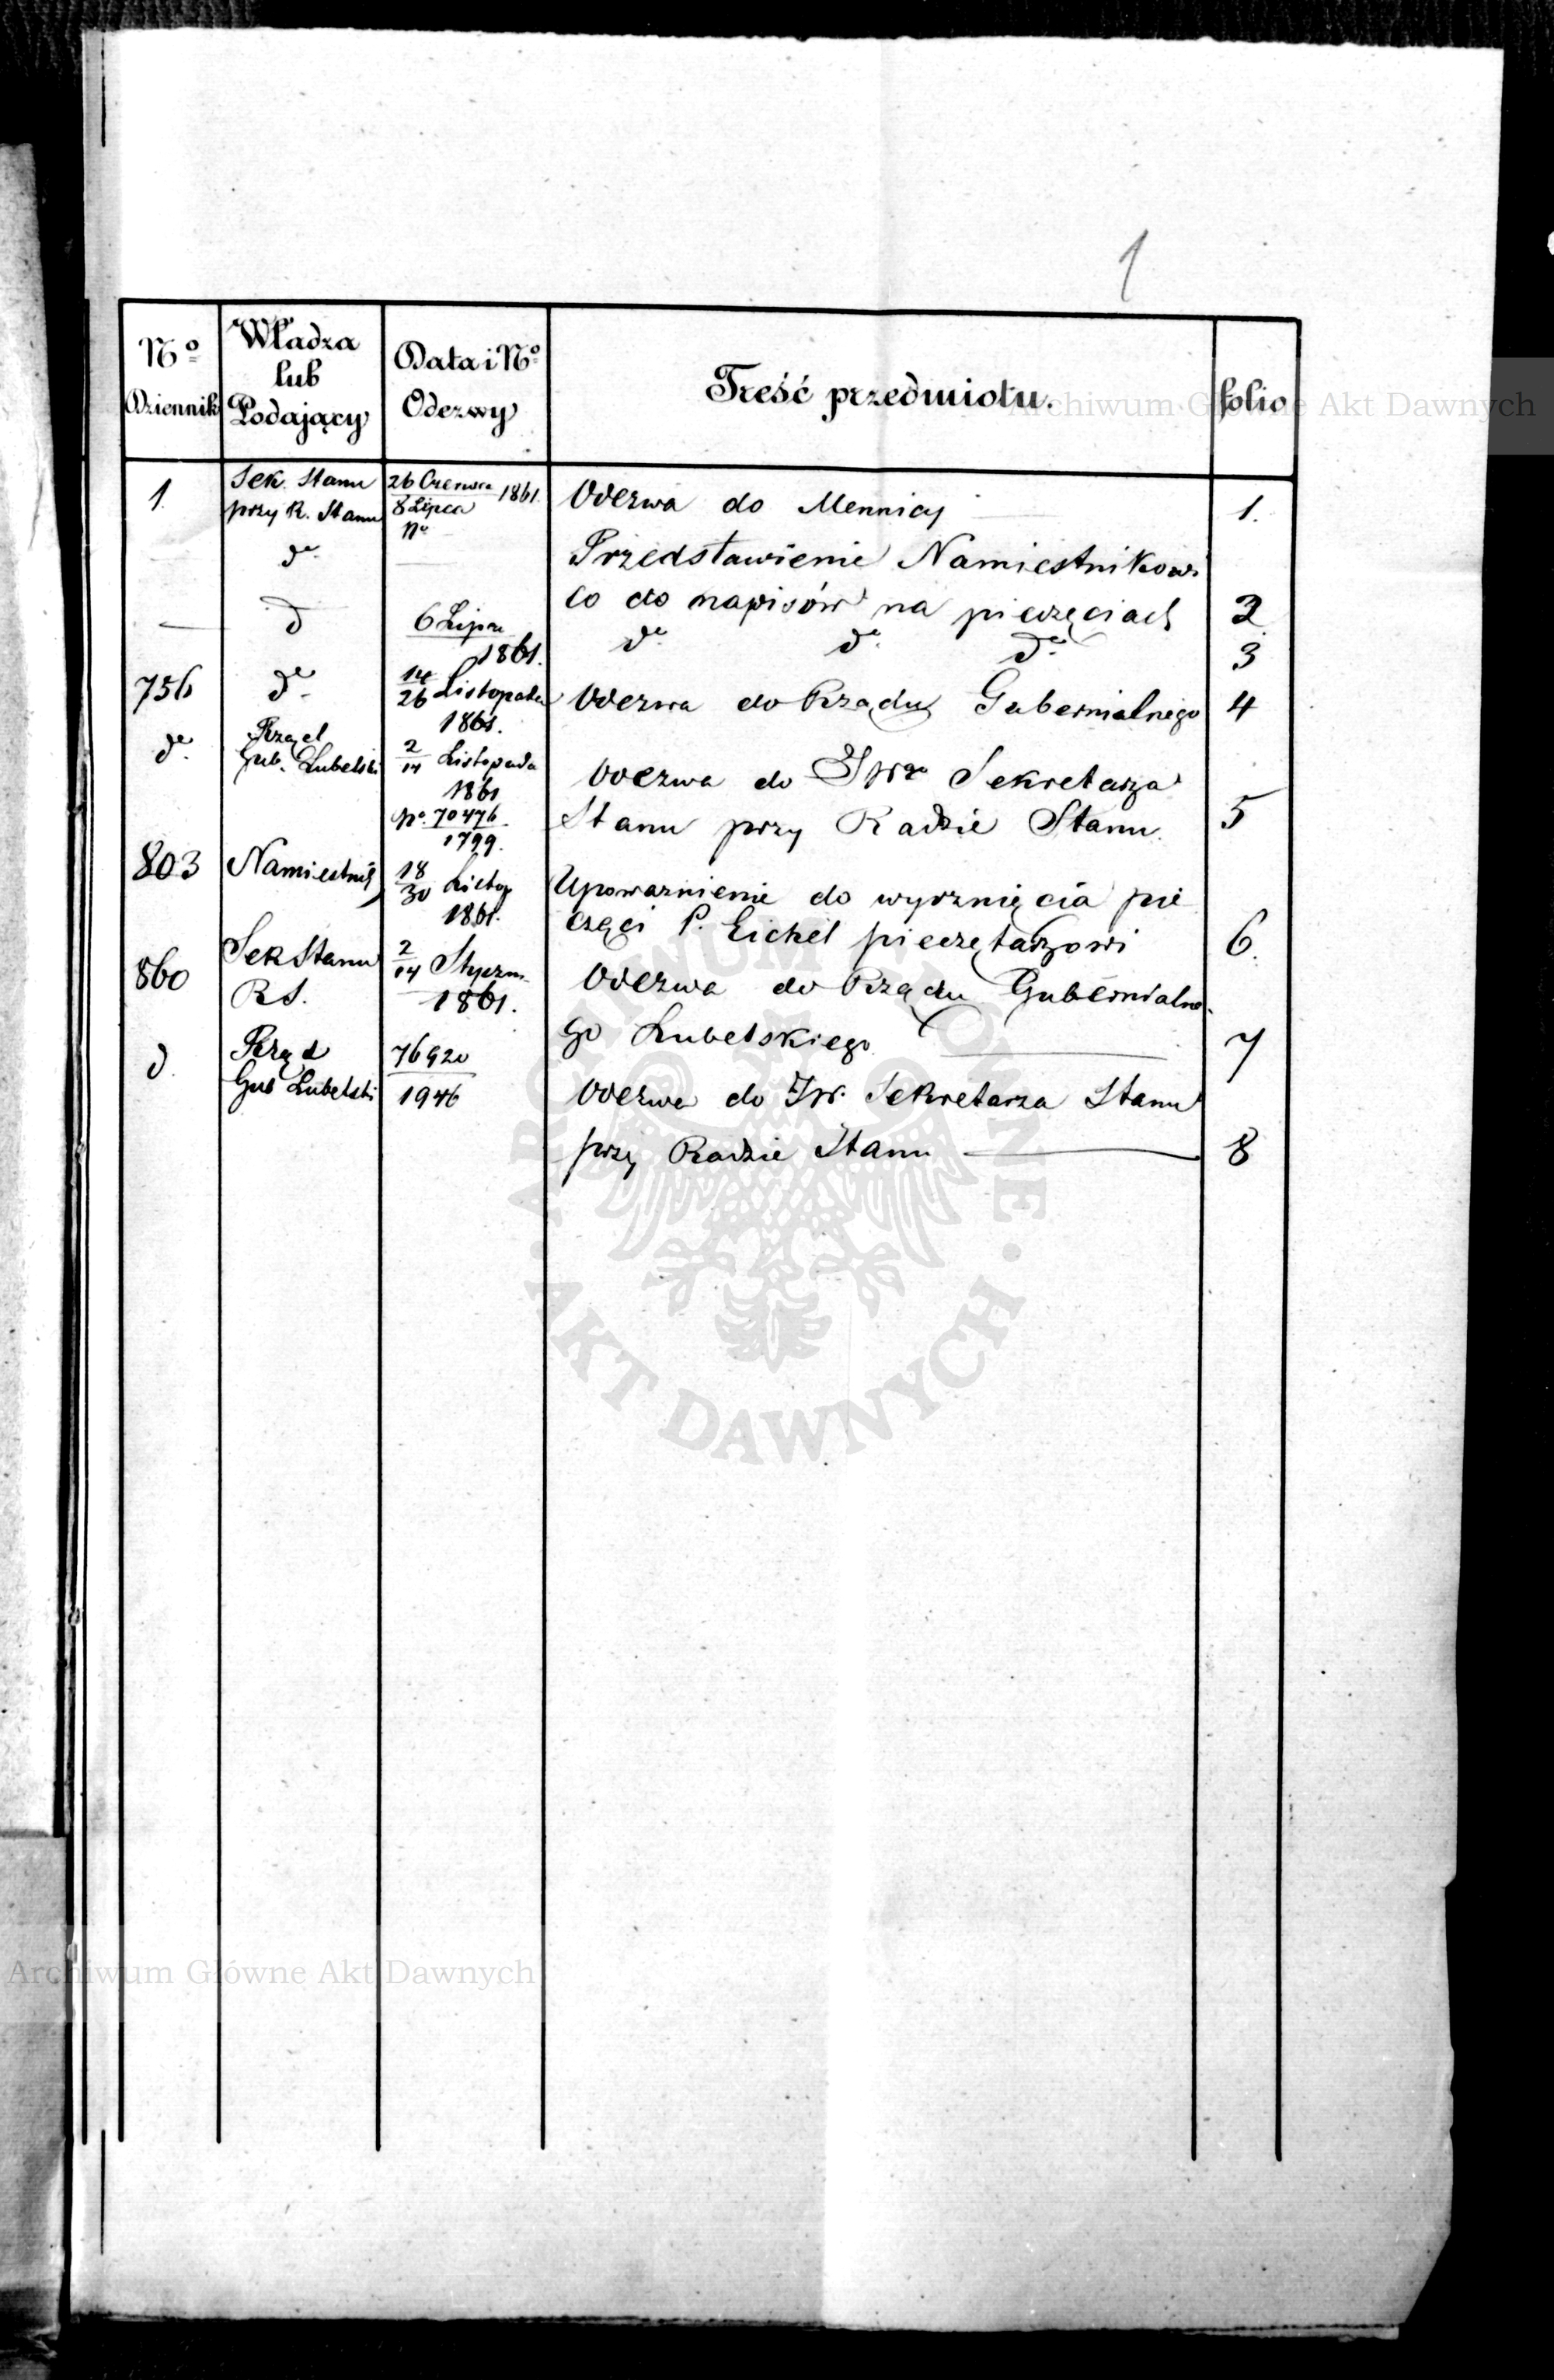 1
Nº Dziennik
Władza lub Podający
Data i Nº Odezwy
Treść przedmiotu.
folio
1. Sek. Stanu 26 Czerwca 1861. Odezwa do Mennicy 1.
przy R. Stanu 8 Lipca
Nº
dº Przedstawienie Namiestnikowi
co do napisów na pieczęciach 2
— d 6 Lipca 1861. dº dº dº 3
756 dº 14/26 Listopada 1861. Odezwa do Rządu Gubernialnego 4
dº Rząd Gub. Lubelski 2/14 Listopada 1861 Odezwa do JWgo Sekretarza
Nº 70476/1799. Stanu przy Radzie Stanu. 5
803 Namiestnik 18/30 Listop 1861. Upoważnienie do wyrznięcia pie
częci P. Eichel pieczętarzowi 6.
860 Sek Stanu R S. 2/14 Styczn. 1861. Odezwa do Rządu Gubernialne
go Lubelskiego 7
d. Rząd Gub Lubelski 76920/1946 Odezwa do JW. Sekretarza Stanu
przy Radzie Stanu 8
Archiwum Główne Akt Dawnych
ARCHIWUM GŁÓWNE · AKT DAWNYCH ·
Archiwum Główne Akt Dawnych